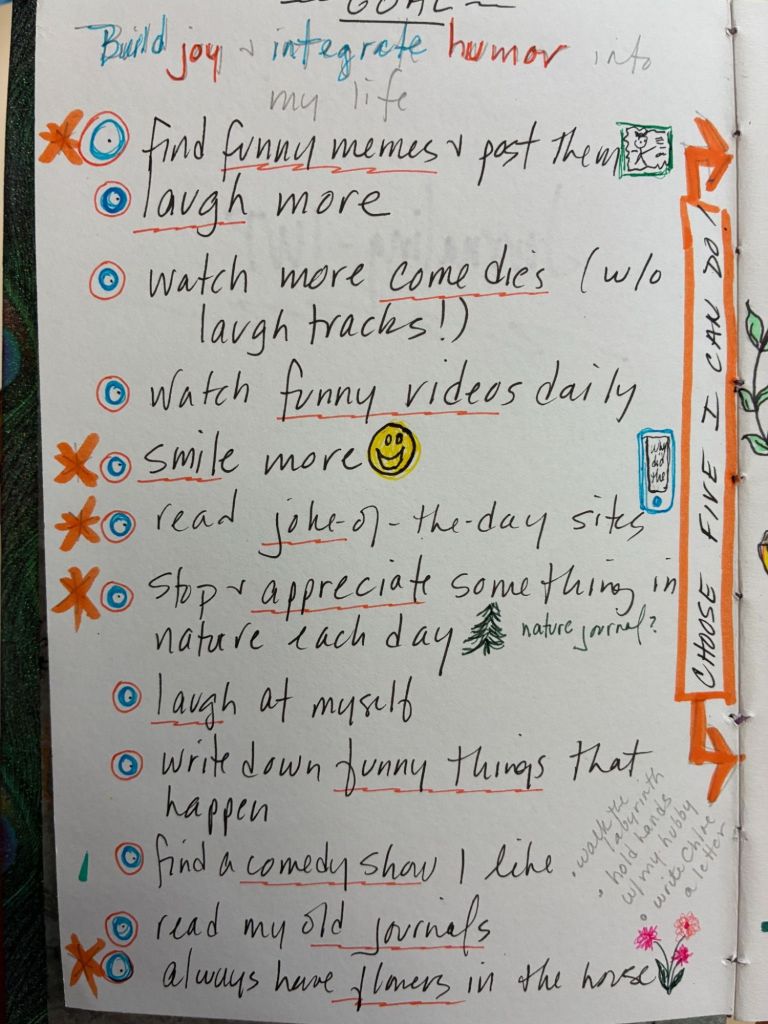 GOAL
Build joy & integrate humor into
my life
find funny memes & post them
laugh more
watch more comedies (w/o
laugh tracks!)
watch funny videos daily
smile more
why
did
the
read joke-of-the-day sites
stop & appreciate something in
nature each day
nature journal?
laugh at myself
write down funny things that
happen
find a comedy show I like
read my old journals
always have flowers in the house
• walk the
labyrinth
• hold hands
w/ my hubby
• write Chloe
a letter
CHOOSE FIVE I CAN DO!